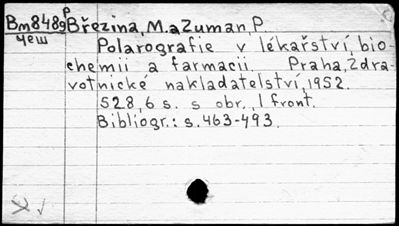 Вм8489 р Březina, M. a Zuman, P.
чеш
Polarografie v lékařství, bio-
chemii a farmacii. Praha, Zdra-
votnické nakladatelství, 1952.
528, 6 s. s obr., 1 front.
Bibliogr.: s. 463-493.